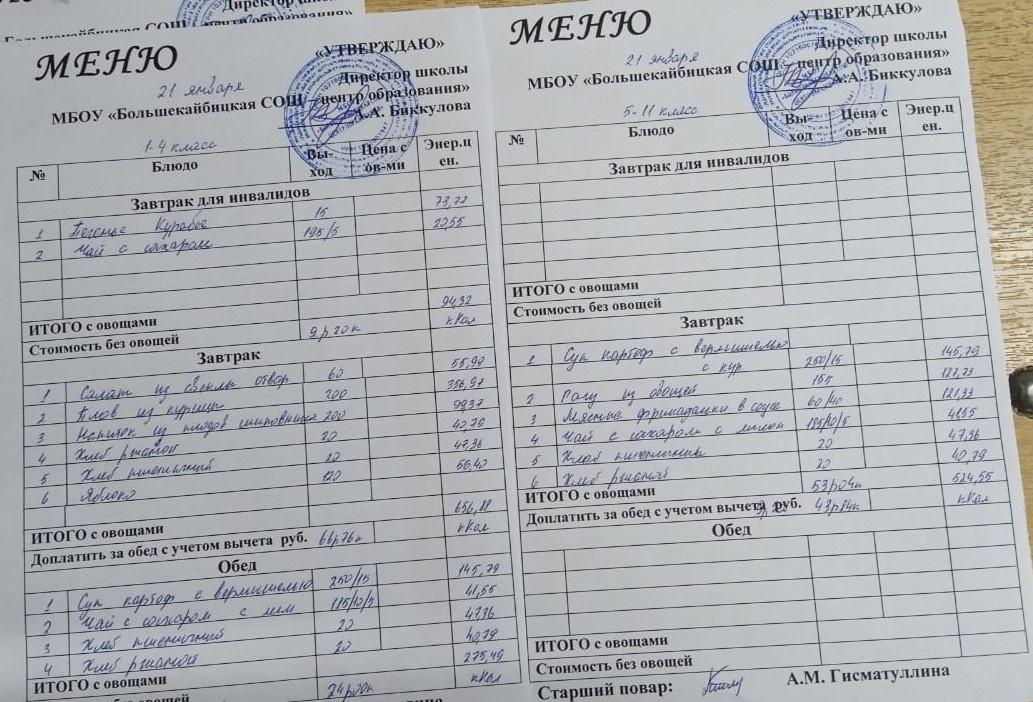 Директор школы
центр образования»
МЕНЮ
«УТВЕРЖДАЮ»
21 января
Директор школы
МБОУ «Большекайбицкая СОШ – центр образования»
А.А. Биккулова
1-4 класс
№ Блюдо Вы-ход Цена с ов-ми Энер.ц ен.
Завтрак для инвалидов
1 Печенье Курабье 15 73,77
2 Чай с сахаром 195/5 20,55
ИТОГО с овощами 94,32
Стоимость без овощей 9р20к кКал
Завтрак
1 Салат из свеклы отвар 60 55,99
2 Плов из курицы 200 356,97
3 Напиток из плодов шиповника 200 99,37
4 Хлеб ржаной 20 40,79
5 Хлеб пшеничный 20 47,36
6 Яблоко 120 56,40
ИТОГО с овощами 656,88
Доплатить за обед с учетом вычета руб. 66р76к кКал
Обед
1 Суп картоф с вермишелью 250/15 145,79
2 Чай с сахаром с лим 185/10/5 41,55
3 Хлеб пшеничный 20 47,36
4 Хлеб ржаной 20 40,79
ИТОГО с овощами 275,49
24р00к кКал
МЕНЮ
«УТВЕРЖДАЮ»
21 января
Директор школы
МБОУ «Большекайбицкая СОШ – центр образования»
А.А. Биккулова
5-11 класс
№ Блюдо Вы-ход Цена с ов-ми Энер.ц ен.
Завтрак для инвалидов
ИТОГО с овощами
Стоимость без овощей
Завтрак
1 Суп картоф с вермишелью
с кур 250/15 145,79
2 Рагу из овощей 155
3 Мясные фрикадельки в соусе 60/40 121,33
4 Чай с сахаром с лимон 185/10/5
5 Хлеб пшеничный 20 47,36
6 Хлеб ржаной 20 40,79
ИТОГО с овощами 53р04к 524,55
Доплатить за обед с учетом вычета руб. 43р84к кКал
Обед
ИТОГО с овощами
Стоимость без овощей
Старший повар: А.М. Гисматуллина